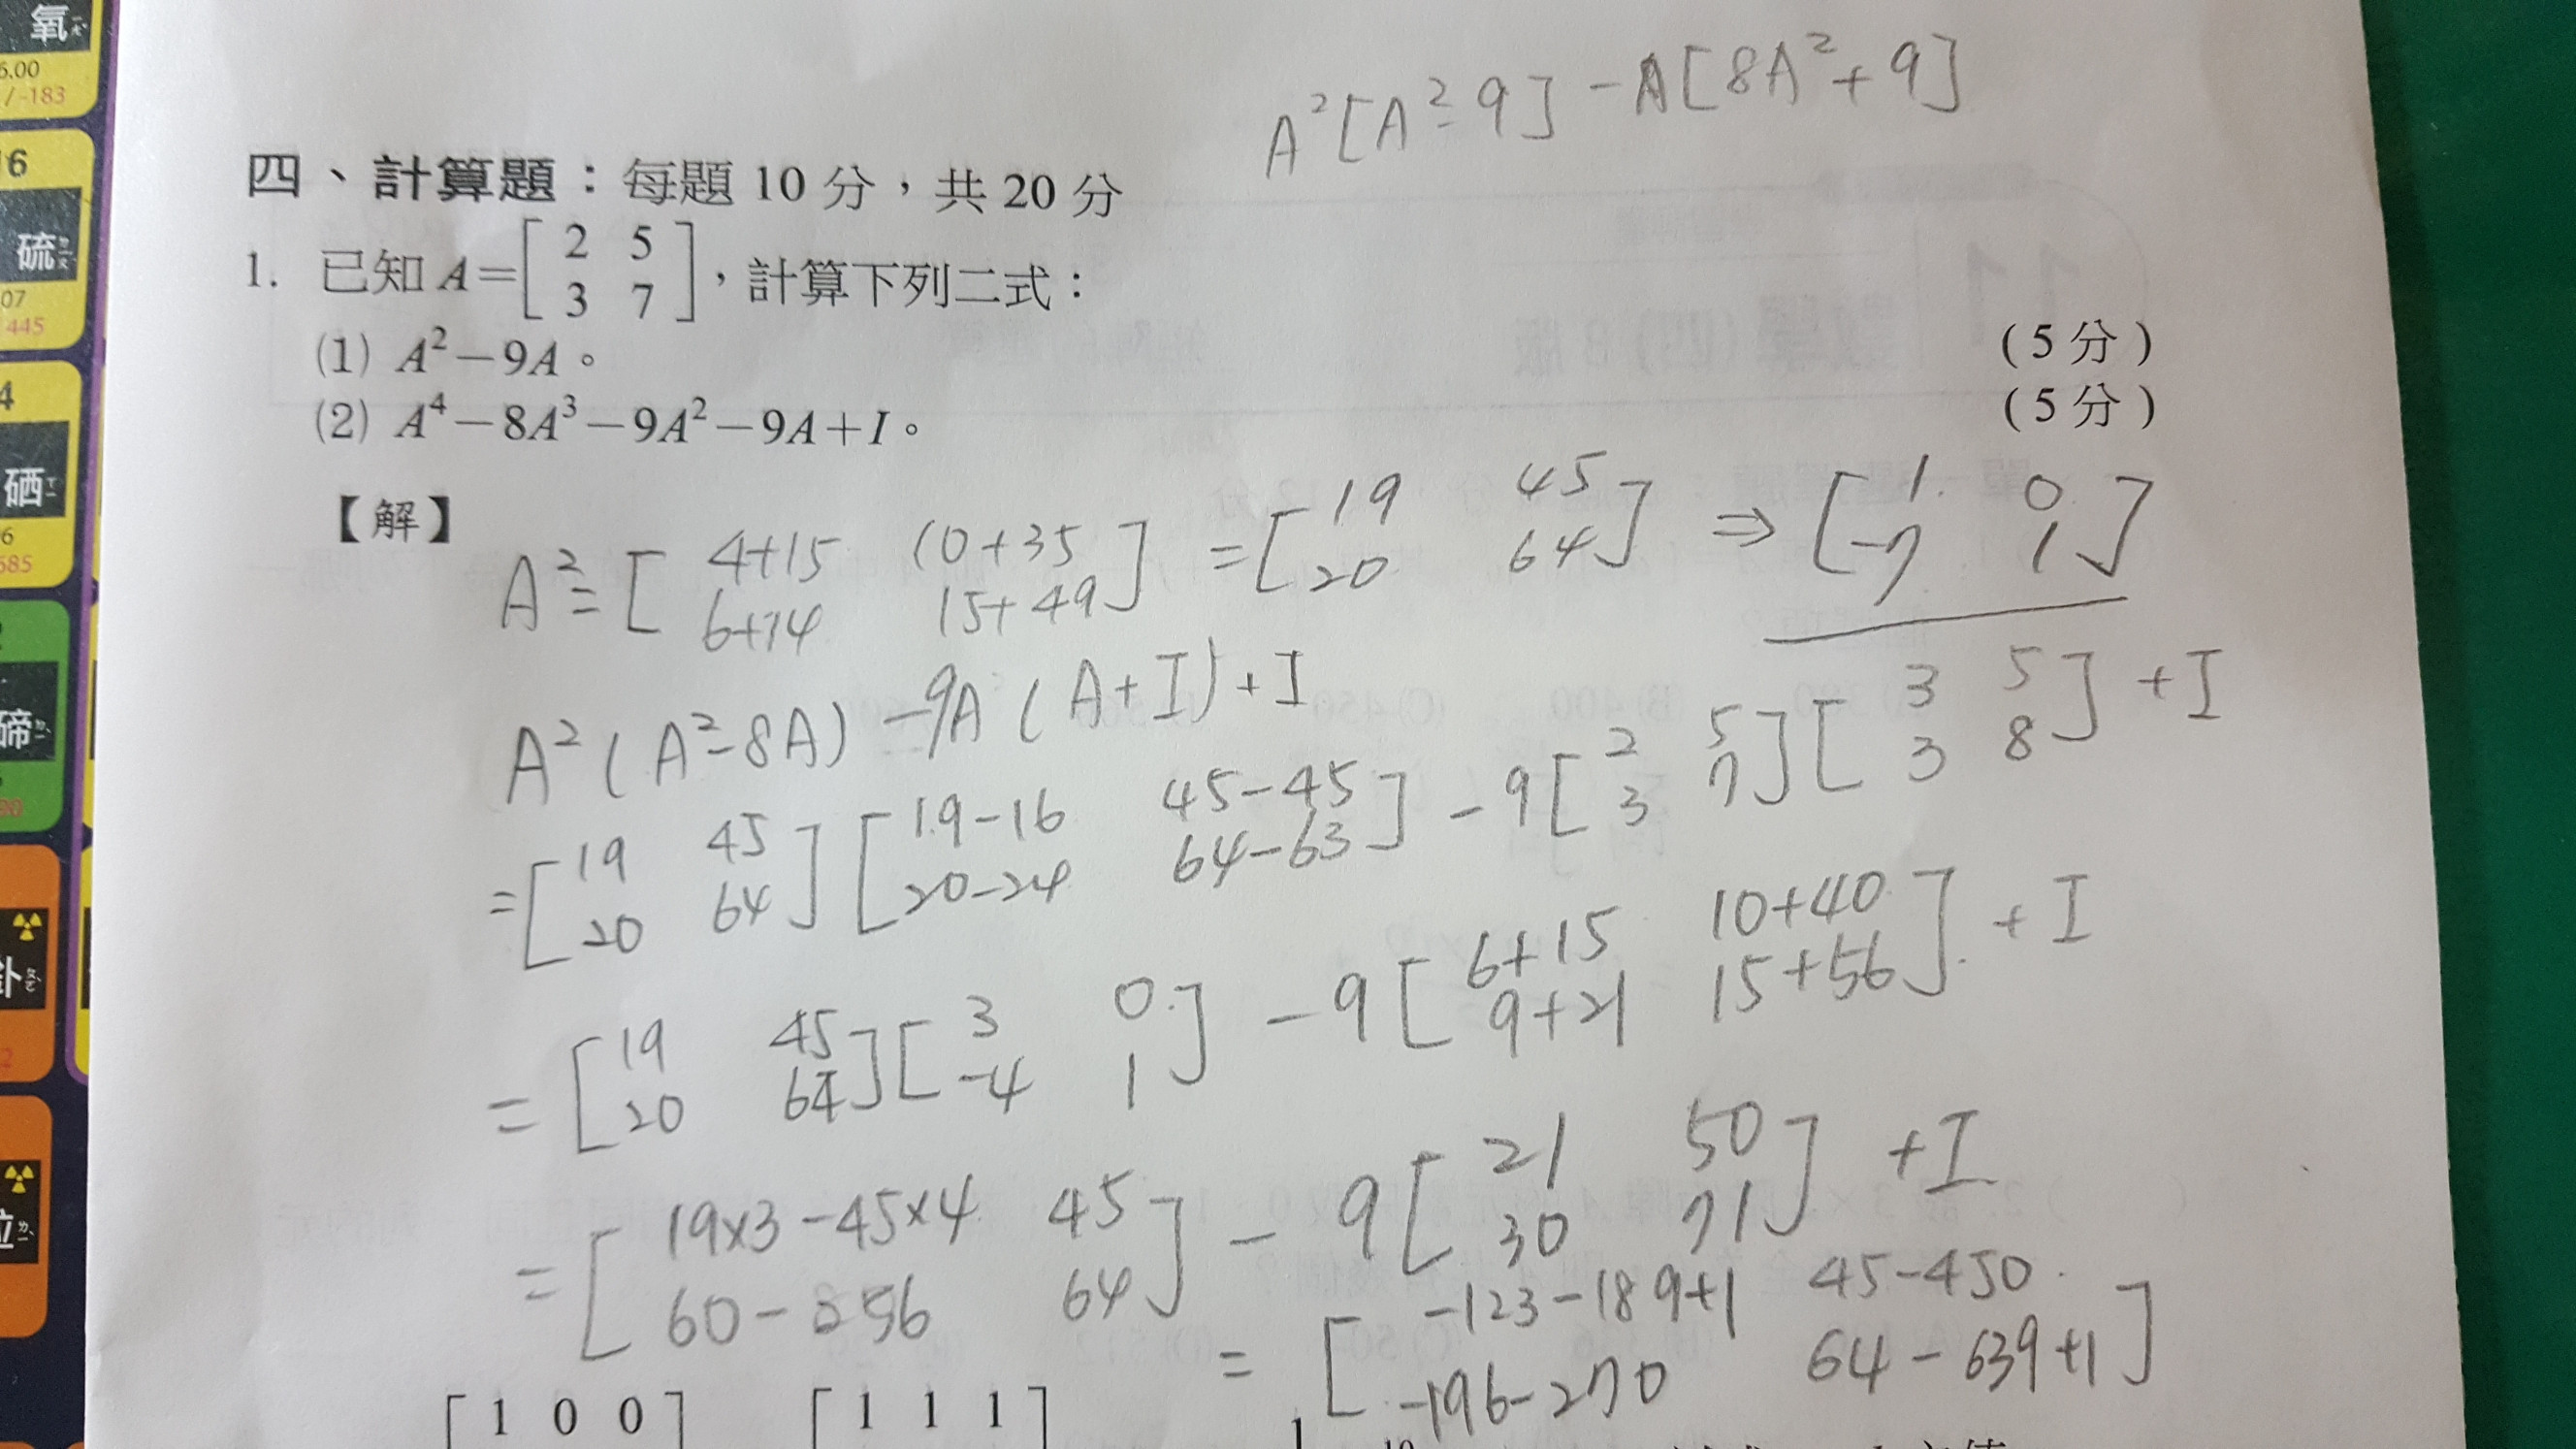 氧
6.00
/ -183
16
硫
07
445
4
硒
6
685
碲
A²[A²-9] -A[8A²+9]
四、計算題：每題 10 分，共 20 分
1. 已知 A=[2 5
3 7]，計算下列二式：
(1) A²－9A。 (5分)
(2) A⁴－8A³－9A²－9A＋I。 (5分)
【解】
A²=[4+15 10+35
6+14 15+49] =[19 45
20 64] ⇒ [1 0
-7 1]
A²(A²-8A) -9A(A+I)+I
=[19 45
20 64][19-16 45-45
20-24 64-63] -9[2 5
3 7][3 5
3 8] +I
=[19 45
20 64][3 0
-4 1] -9[6+15 10+40
9+21 15+56] +I
=[19×3-45×4 45
60-256 64] -9[21 50
30 71] +I
=[-123-189+1 45-450
-196-270 64-639+1]
[1 0 0] [1 1 1]